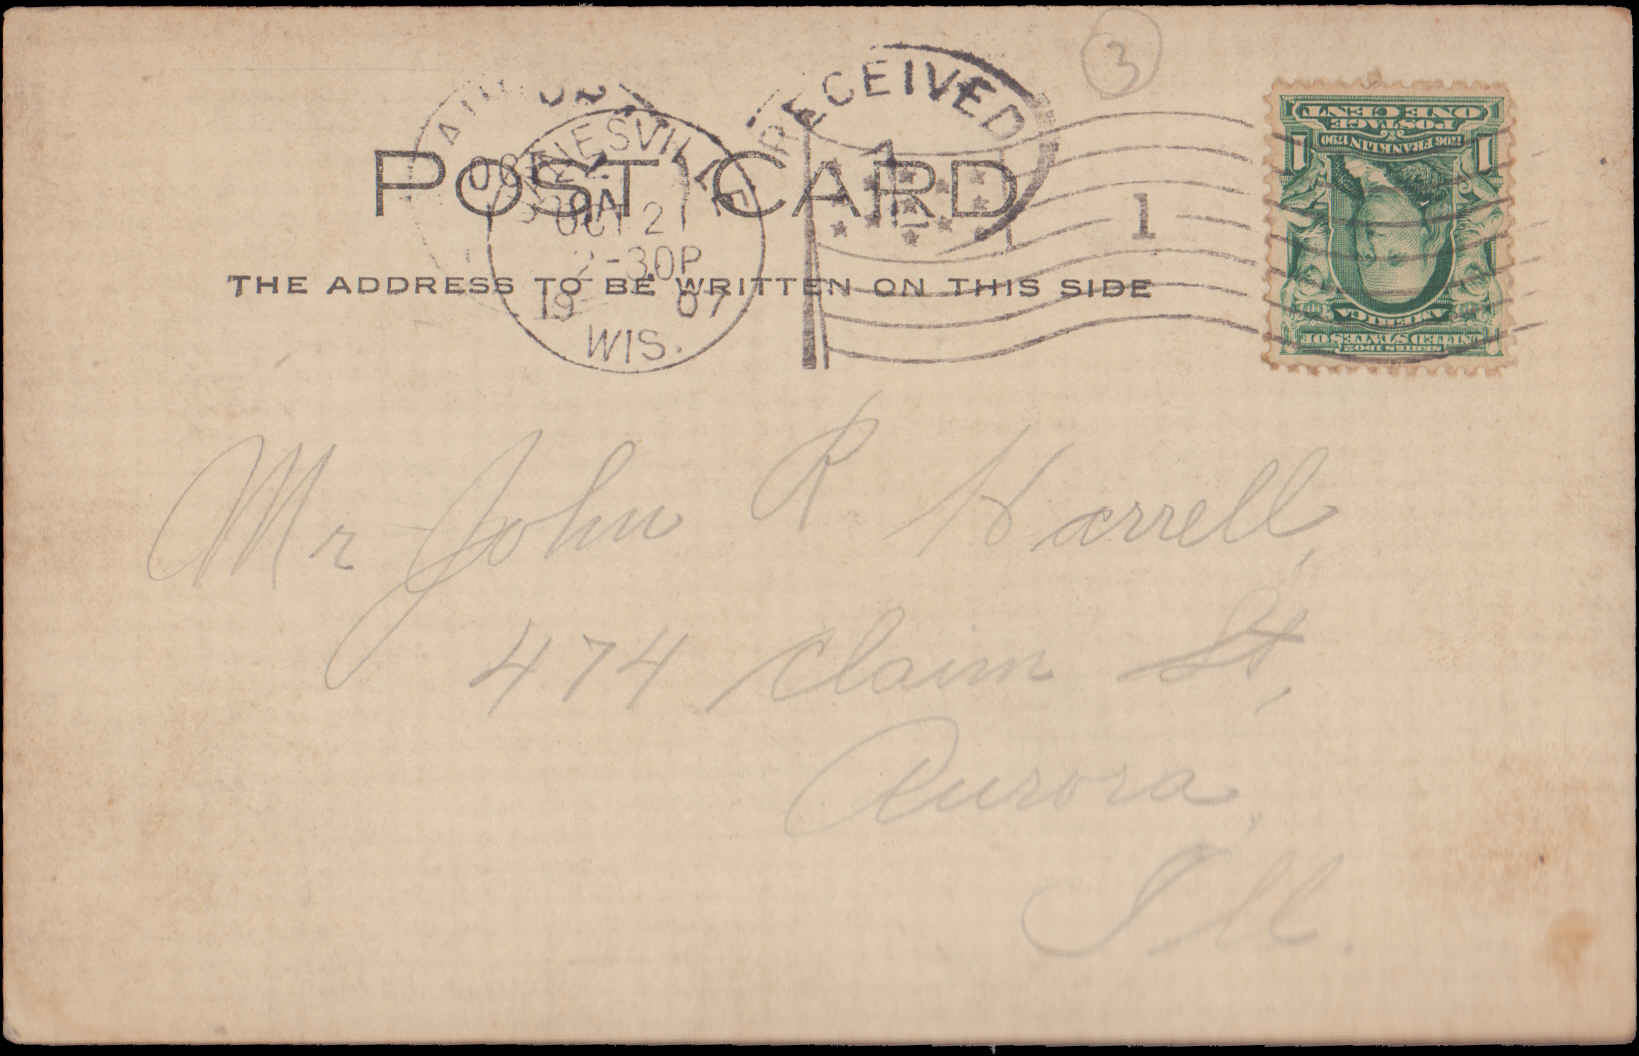 3
RECEIVED
1
AUROR
JANESVILLE
OCT 21
2-30P
19 07
WIS.
1
POST CARD
THE ADDRESS TO BE WRITTEN ON THIS SIDE
SERIES 1902
UNITED STATES OF
AMERICA
1706 FRANKLIN 1790
POSTAGE
ONE CENT
1 1
Mr John R Harrell,
474 Claim St,
Aurora,
Ill.